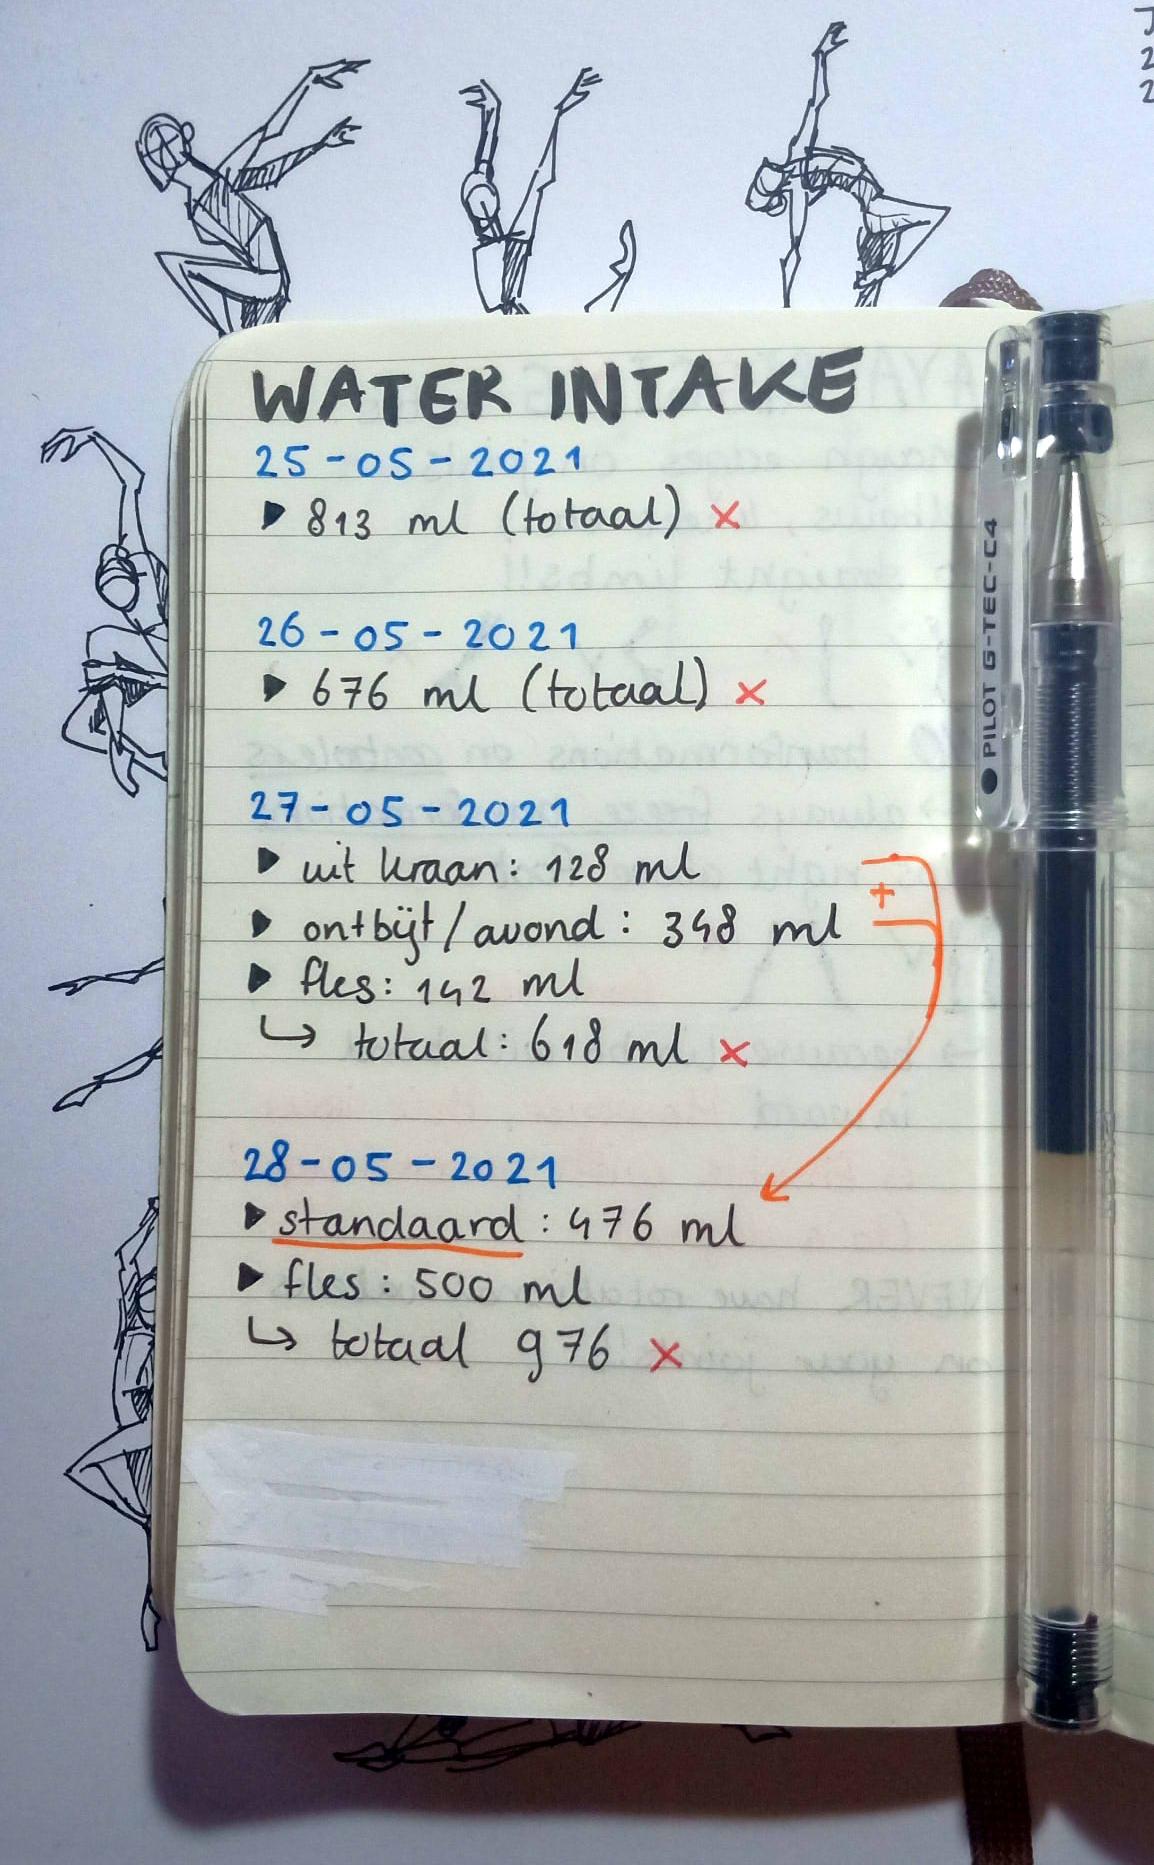 WATER INTAKE
25-05-2021
▶ 813 ml (totaal) ×
26-05-2021
▶ 676 ml (totaal) ×
27-05-2021
▶ uit kraan: 128 ml
+
▶ ontbijt/avond: 348 ml
▶ fles: 142 ml
↳ totaal: 618 ml ×
28-05-2021
▶ standaard: 476 ml
▶ fles: 500 ml
↳ totaal 976 ×
PILOT G-TEC-C4